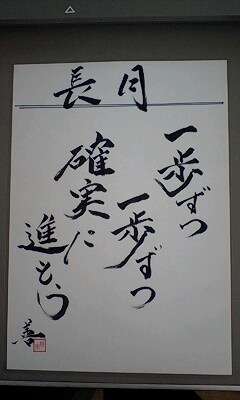 長月
一歩ずつ
一歩ずつ
確実に
進もう
善